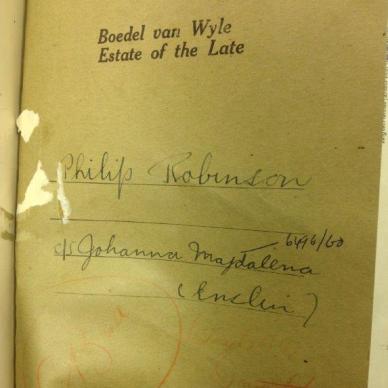 Boedel van Wyle
Estate of the Late
Philip Robinson
6496/60
c/s Johanna Magdalena
(Enslin)